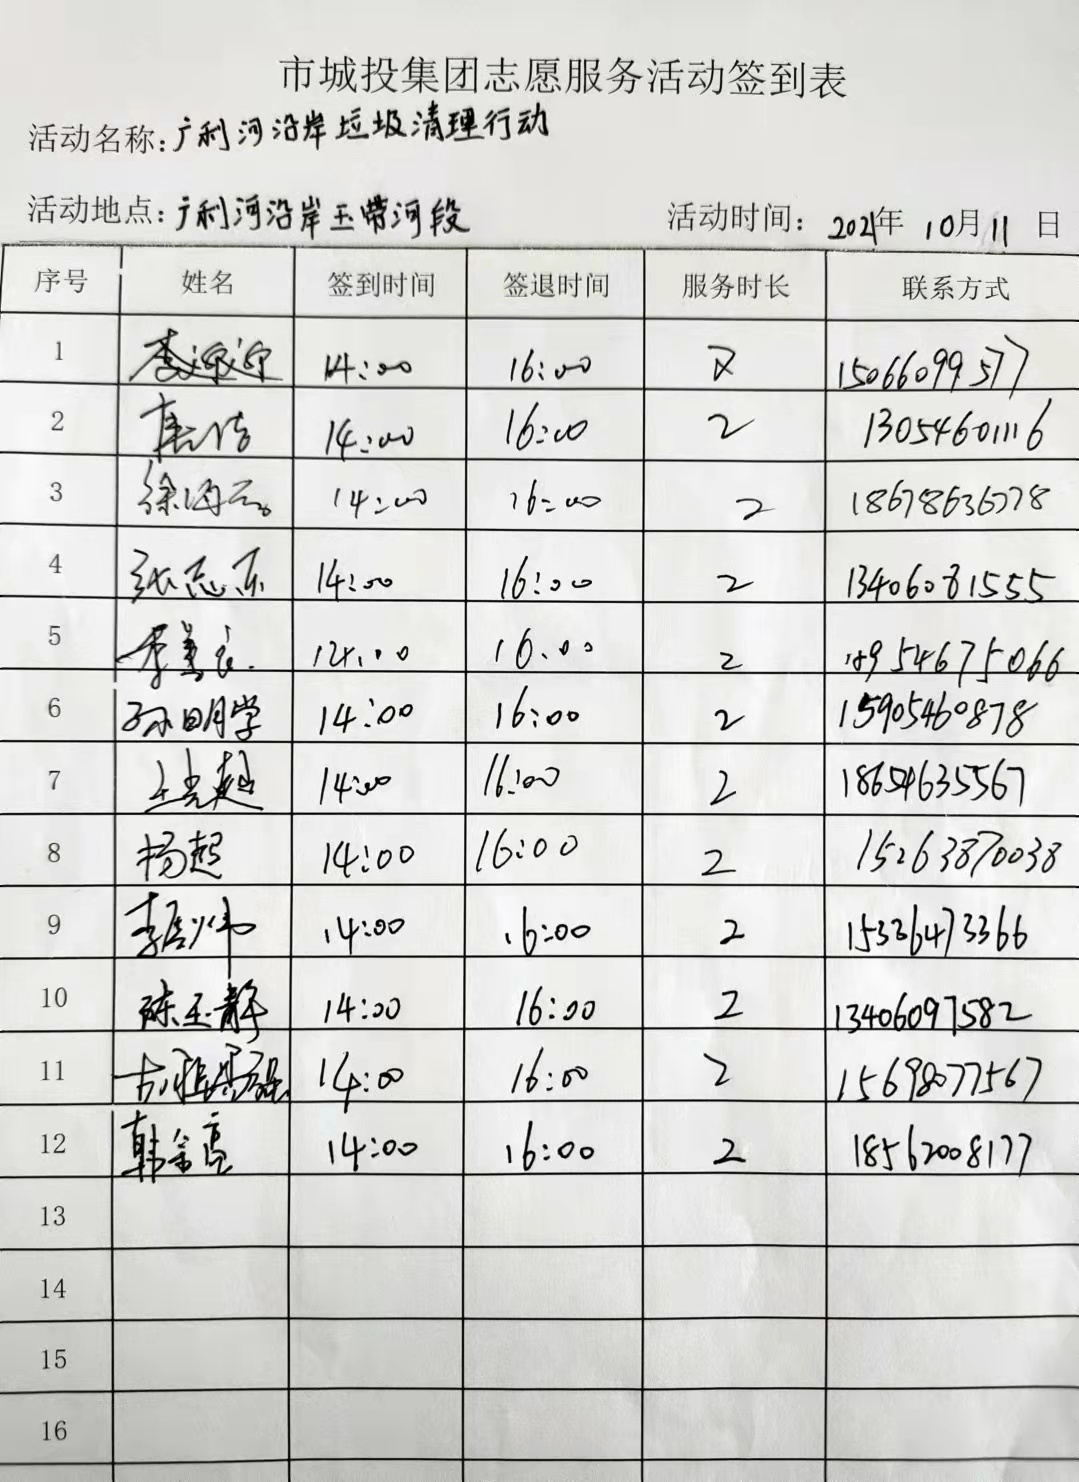 市城投集团志愿服务活动签到表
活动名称:广利河沿岸垃圾清理行动
活动地点:广利河沿岸玉带河段 活动时间: 2021年 10月11日
序号 姓名 签到时间 签退时间 服务时长 联系方式
1 14:00 16:00 2 15066099577
2 14:00 16:00 2 13054601116
3 14:00 16:00 2 18678636778
4 张志东 14:00 16:00 2 13406081555
5 16:00 2
6 孙明学 14:00 16:00 2 15905460878
7 14:00 16:00 2 18654635567
8 杨超 14:00 16:00 2 15263870038
9 14:00 16:00 2 15336473366
10 陈玉静 14:00 16:00 2 13406097582
11 14:00 16:00 2 15698077567
12 韩金亮 14:00 16:00 2 18562008177
13
14
15
16